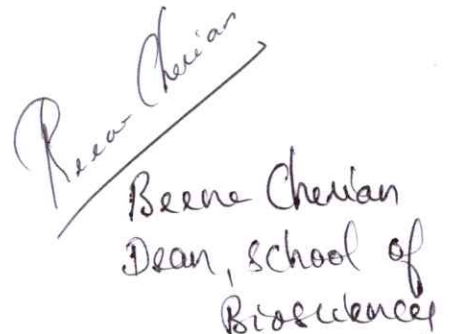 Reena Cherian
Beena Cherian
Dean, School of
Biosciences